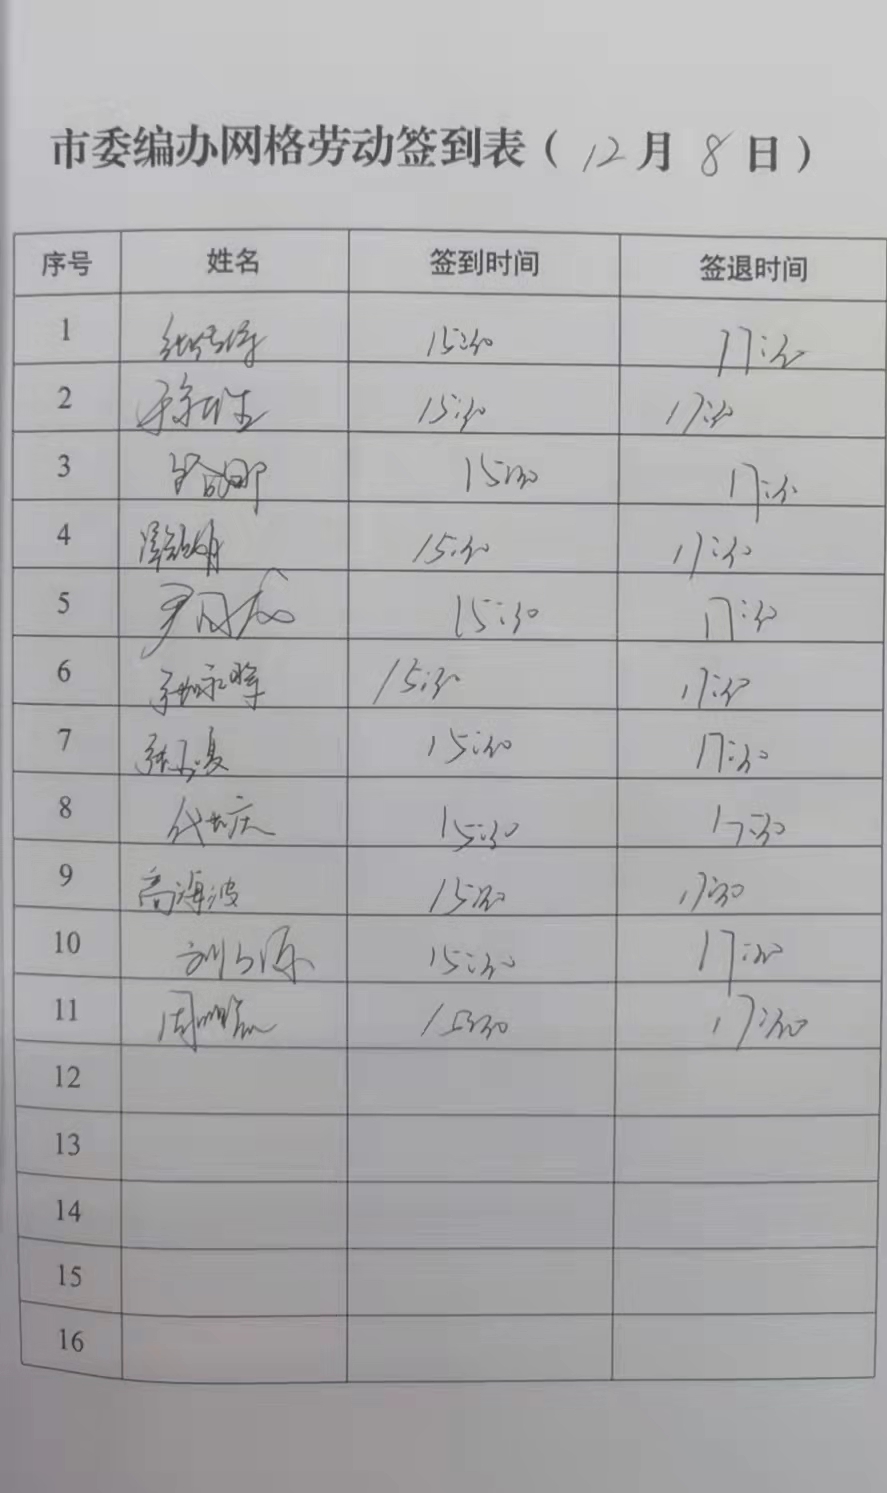 市委编办网格劳动签到表（12月8日）
序号 姓名 签到时间 签退时间
1 15:30 17:30
2 15:30 17:30
3 15:30 17:30
4 15:30 17:30
5 15:30 17:30
6 15:30 17:30
7 15:30 17:30
8 15:30 17:30
9 高海波 15:30 17:30
10 15:30 17:30
11 15:30 17:30
12
13
14
15
16